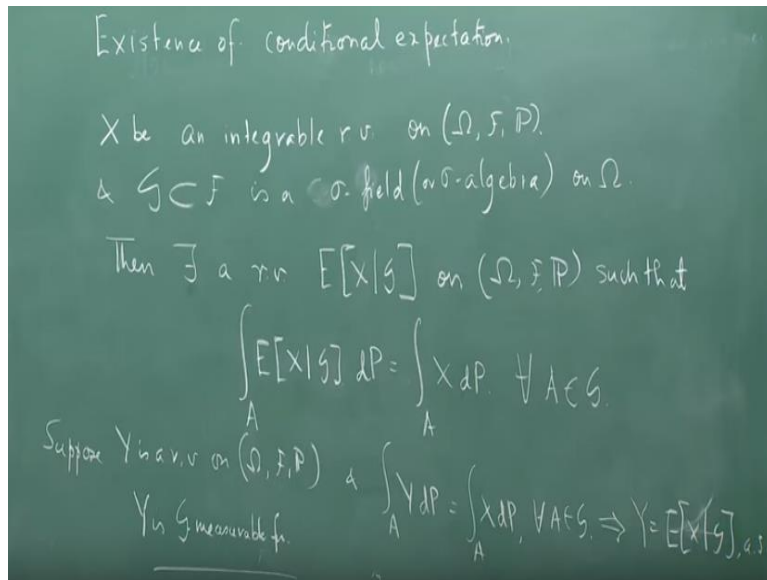 Existence of conditional expectation.
X be an integrable r.v. on (Ω, F, P).
& G ⊂ F is a σ-field (or σ-algebra) on Ω.
Then ∃ a r.v. E[X|G] on (Ω, F, P) such that
∫_A E[X|G] dP = ∫_A X dP. ∀ A ∈ G.
Suppose Y is a r.v. on (Ω, F, P) & ∫_A Y dP = ∫_A X dP, ∀ A ∈ G. ⇒ Y = E[X|G], a.s
Y is G measurable fn.